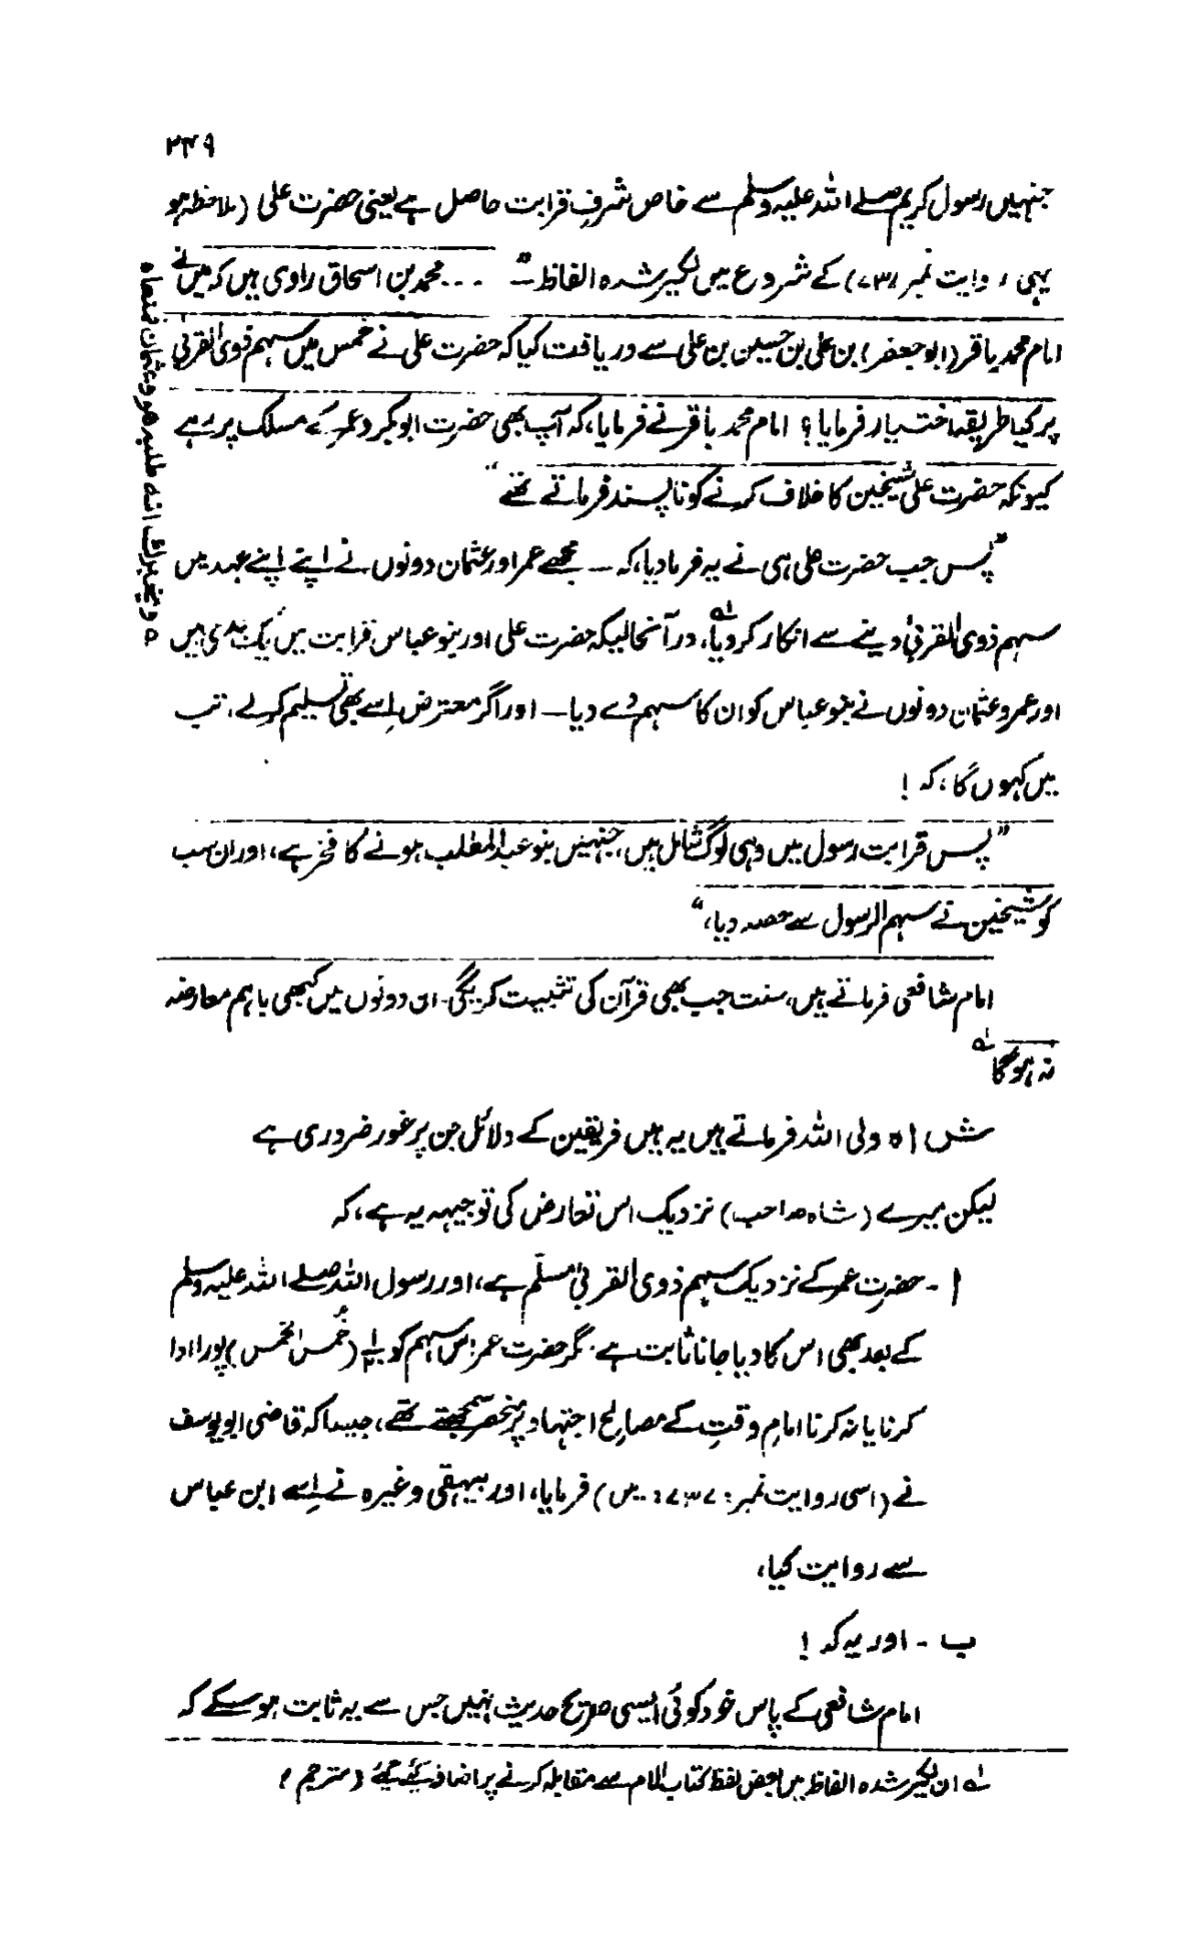 ۲۴۹
جنہیں رسول کریم صلے اللہ علیہ وسلم سے خاص شرفِ قرابت حاصل ہے یعنی حضرت علی (ملاخظہ ہو
یہی روایت نمبر (۷۳۷) کے شروع میں لکیر شدہ الفاظ ــ " ... محمد بن اسحاق راوی ہیں کہ میں نے
امام محمد باقر (ابو جعفر) بن علی بن حسین بن علی سے دریافت کیا کہ حضرت علی نے خمس میں سہم ذوی القربیٰ
پر کیا طریقہ اختیار فرمایا؟ امام محمد باقر نے فرمایا، کہ آپ بھی حضرت ابو بکر و عمر کے مسلک پر رہے
کیونکہ حضرت علی شیخین کا خلاف کرنے کو ناپسند فرماتے تھے"
"پس جب حضرت علی ہی نے یہ فرما دیا، کہ ــ مجھے عمر اور عثمان دونوں نے اپنے اپنے عہد میں
سہم ذوی القربیٰ دینے سے انکار کر دیا، درآنحالیکہ حضرت علی اور بنو عباس قرابت میں یک جدی ہیں
اور عمر و عثمان دونوں نے بنو عباس کو ان کا سہم دے دیا ــ اور اگر معترض اِسے بھی تسلیم کر لے، تب
میں کہوں گا، کہ !
"پس قرابت رسول میں وہی لوگ شامل ہیں، جنہیں بنو عبدالمطلب ہونے کا فخر ہے، اور ان سب
کو شیخین نے سہم الرسول سے حصہ دیا،"
امام شافعی فرماتے ہیں، سنت جب بھی قرآن کی تثبیت کریگی۔ ان دونوں میں کبھی باہم معارضہ
نہ ہوگا لہ
شاہ ولی اللہ فرماتے ہیں یہ ہیں فریقین کے دلائل جن پر غور ضروری ہے
لیکن میرے (شاہ صاحب) نزدیک اس تعارض کی توجیہہ یہ ہے، کہ
ا۔ حضرتِ عمر کے نزدیک سہم ذوی القربیٰ مسلّم ہے، اور رسول اللہ صلے اللہ علیہ وسلم
کے بعد بھی اس کا دیا جانا ثابت ہے۔ مگر حضرت عمر اس سہم کو (خُمس الخمس) پورا ادا
کرنا یا نہ کرنا امامِ وقتِ کے مصالحِ اجتہاد پر منحصر سمجھتے تھے، جیسا کہ قاضی ابو یوسف
نے (اسی روایت نمبر: ۷۳۷: میں) فرمایا، اور بیہقی وغیرہ نے اِسے ابن عباس
سے روایت کیا،
ب ۔ اور یہ کہ !
امام شافعی کے پاس خود کوئی ایسی صریح حدیث نہیں جس سے یہ ثابت ہو سکے کہ
لہ ان لکیر شدہ الفاظ میں بعض لفظ کتاب الام سے مقابلہ کرنے پر اضافہ کئے گئے (مترجم)